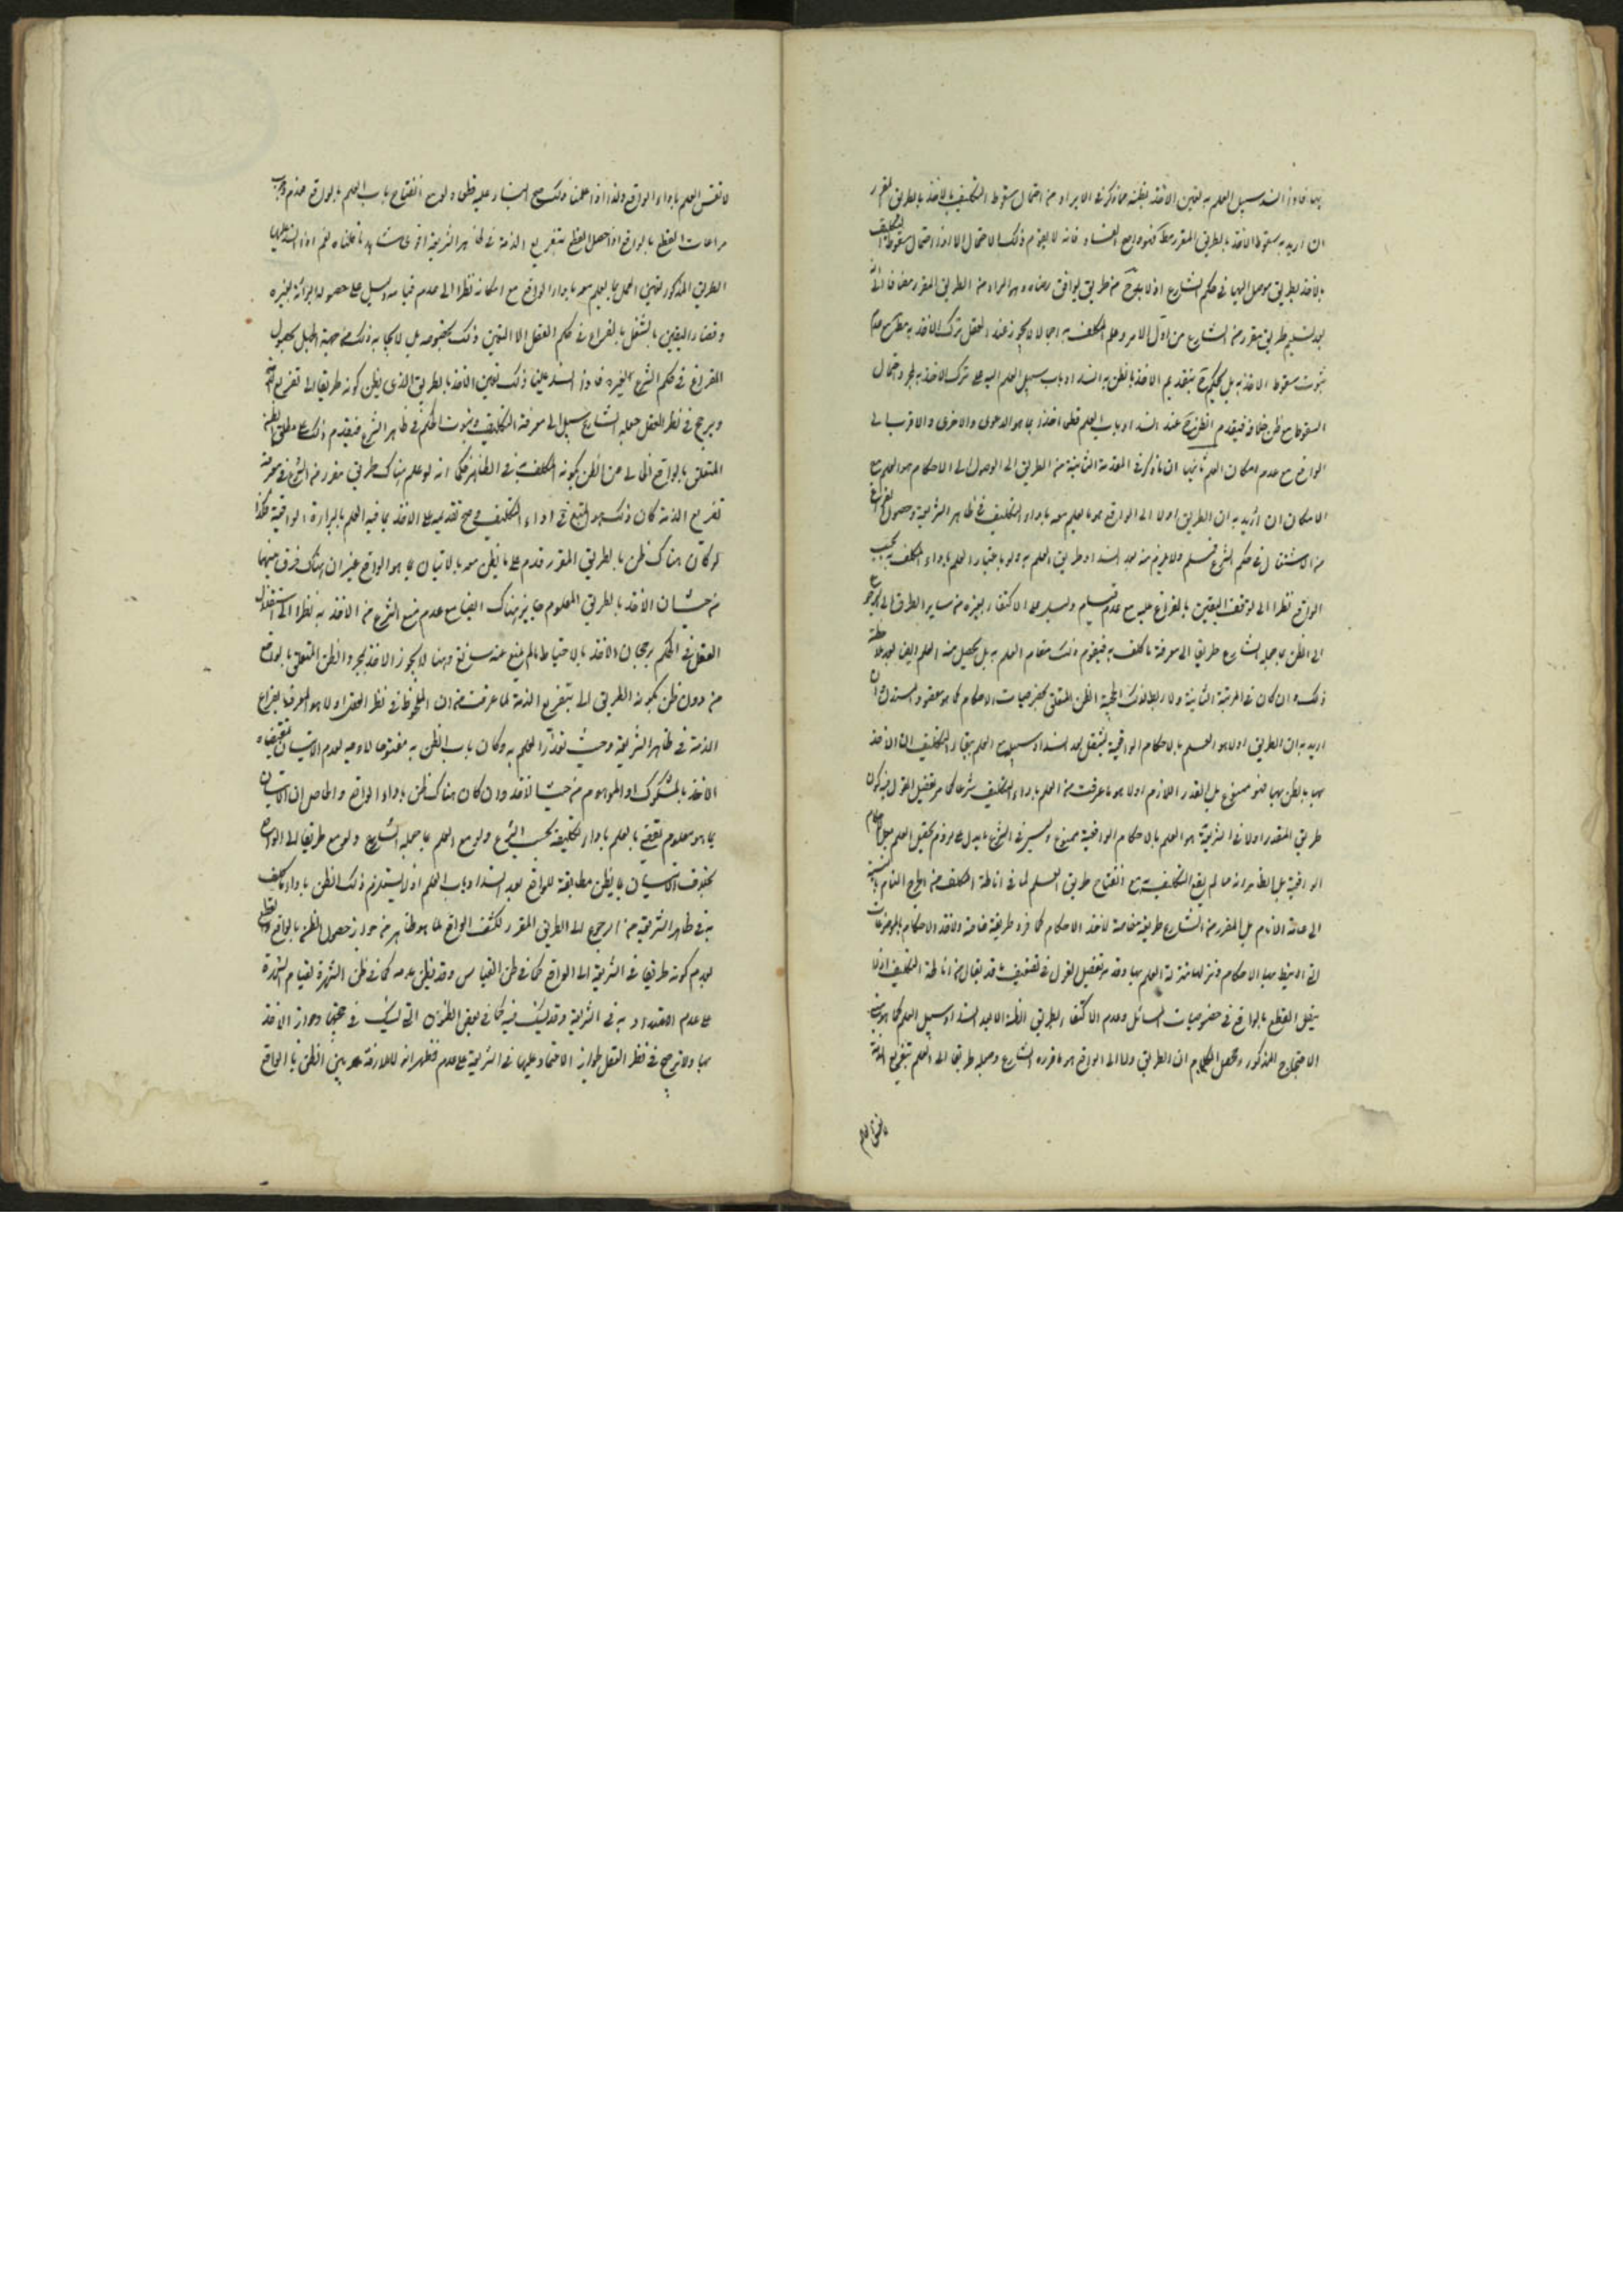 بها فاذا انسد سبيل العلم به تعين الاخذ بظنه فما ذكر في الايراد من احتمال سقوط التكليف بالاخذ بالطريق المقرر
ان اريد به سقوط الاخذ بالطريق المقرر مط فهو واضح الفساد فانه لا يقوم ذلك الاحتمال الا اذا احتمل سقوط التكليف
بالاخذ بطريق موصل اليها في حكم الشارع اذ لا بد ح من طريق يوافق رضاه وهو المراد من الطريق المقرر مضافا الى انه
بعد تسليم طريق مقرر من الشارع من اول الامر وعلم المكلف به اجمالا لا يجوز عند العقل ترك الاخذ به مط مع عدم
ثبوت سقوط الاخذ به بل يحكم ح بتقديم الاخذ بالظن به بعد انسداد باب سبيل العلم اليه على ترك الاخذ به لمجرد احتمال
السقوط مع ظن خلافه فيقدم الظن ح عند انسداد باب العلم قطعا اخذا بما هو الاحرى والاقرب الى
الواقع مع عدم امكان العلم ثانيها ان ما ذكر في المقدمة الثانية من الطريق الى الوصول الى الاحكام هو العلم مع
الامكان ان اريد به ان الطريق اولا الى الواقع هو ما يعلم معه باداء التكليف في ظاهر الشريعة وحصول الفراغ
من الاشتغال في حكم الشرع فمسلم ولا يلزم منه بعد انسداد طريق العلم به ولو باعتبار العلم باداء المكلف به بحسب
الواقع نظرا الى توقف اليقين بالفراغ عليه مع عدم قيام دليل على الاكتفاء بغيره من ساير الطرق الا الرجوع
الى الظن بما جعله الشارع طريقا الى معرفة ما كلف به فيقوم ذلك مقام العلم به بل يحصل منه العلم ايضا بعد ملاحظة
ذلك وان كان في المرتبة الثانية ولا ربط لذلك بحجية الظن المتعلق بخصوصيات الاحكام كما هو مقصود المستدل وان
اريد به ان الطريق اولا هو العلم بالاحكام الواقعية فينتقل بعد انسداد سبيله مع العلم ببقاء التكليف الى الاخذ
بها بالظن بها فهو ممنوع بل القدر اللازم اولا هو ما عرفت من العلم باداء التكليف شرعا كما مر تفصيل القول فيه وكون
طريق المقدر اولا في الشريعة هو العلم بالاحكام الواقعية ممنوع وليس في الشرع ما يدل على لزوم تحصيل العلم بكل الاحكام
الواقعية بل الظاهر انه مما لم يقع التكليف به مع انفتاح طريق العلم لما في اناطة المكلف به من الحرج التام بالنسبة
الى عامة الانام بل المقرر من الشارع طريقة خاصة لاخذ الاحكام كما قرر طريقة خاصة لاخذ الاحكام بالموضوعات
التي انيط بها الاحكام ونزلها منزلة العلم بها وقد مر تفصيل القول في تضعيف ما قد يقال من اناطة التكليف اولا
بنفس القطع بالواقع في خصوصيات المسائل وعدم الاكتفاء بطريق الظنية الا بعد انسداد سبيل العلم كما هو مبنى
الاحتجاج المذكور ومحصل الكلام ان الطريق اولا الى الواقع هو ما قرره الشارع وجعله طريقا الى العلم بتفريغ الذمة
لا نفس العلم
لا نفس العلم باداء الواقع ولذا اذا علمنا ذلك صح البناء عليه قطعا ولو مع انفتاح باب العلم بالواقع فعدم وجوب
مراعات القطع بالواقع اذا حصل القطع بتفريغ الذمة في ظاهر الشريعة اقوى شاهد على ما قلناه نعم اذا انسد علينا
الطريق المذكور تعين العمل بما يعلم معه باداء الواقع مع امكانه نظرا الى عدم قيام دليل على حصول البرائة بغيره
وقضاء اليقين بالشغل باليقين بالفراغ في حكم العقل لا لتعين ذلك بخصوصه بل لايجابه ذلك من جهة الجهل بحصول
الفراغ في حكم الشرع بغيره فاذا انسد علينا ذلك تعين الاخذ بالطريق الذي يظن كونه طريقا الى تفريغ الذمة
ويرجح في نظر العقل جعله الشارع سبيلا الى معرفة التكليف وثبوت الحكم في ظاهر الشرع فيقدم ذلك على مطلق الظن
المتعلق بالواقع الخالي عن الظن بكونه المكلف به في الظاهر فكما انه لو علم هناك طريق مقرر من الشرع في معرفة
تفريغ الذمة كان ذلك هو المتبع في اداء التكليف وصح تقديمه على الاخذ بما فيه العلم بالبرائة الواقعية فكذا
لو كان هناك ظن بالطريق المقرر قدم على ما يظن معه بالاتيان بما هو الواقع غير ان هناك فرق بينهما
من حيث ان الاخذ بالطريق المعلوم جايز هناك ايضا مع عدم منع الشرع من الاخذ به نظرا الى استقلال
العقل في الحكم برجحان الاخذ بالاحتياط ما لم يمنع عنه مانع وهنا لا يجوز الاخذ بمجرد الظن المتعلق بالواقع
من دون ظن بكونه الطريق الى تفريغ الذمة لما عرفت من ان الملحوظ في نظر العقل اولا هو المعرفة بفراغ
الذمة في ظاهر الشريعة وحيث تعذر العلم به وكان باب الظن به مفتوحا لا وجه لعدم الاتيان بمقتضاه
الاخذ بالمشكوك او الموهوم من حيث الاخذ وان كان هناك ظن باداء الواقع والحاصل ان الاتيان
بما هو معلوم يقضي بالعلم باداء تكليفه بحسب الشرع ولو مع العلم بما جعله الشارع ولو مع طريقا الى الواقع
بخلاف الاتيان بما يظن مطابقته للواقع بعد انسداد باب العلم اذ لا يستلزم ذلك الظن باداء ما كلف
به في ظاهر الشريعة من الرجوع الى الطريق المقرر لكشف الواقع لما هو ظاهر من جواز حصول الظن بالواقع والقطع
بعدم كونه طريقا في الشريعة الى الواقع كما في ظن القياس وقد يظن عدمه كما في ظن الشهرة لقيام الشهرة
على عدم الاعتداد به في الشريعة وقد يشك فيه كما في بعض الظنون التي يشك في حجيتها وجواز الاخذ
بها ولا ترجيح في نظر العقل لجواز الاعتماد عليها في الشريعة على عدمه فظهر ان لا ملازمة بين الظن بالواقع